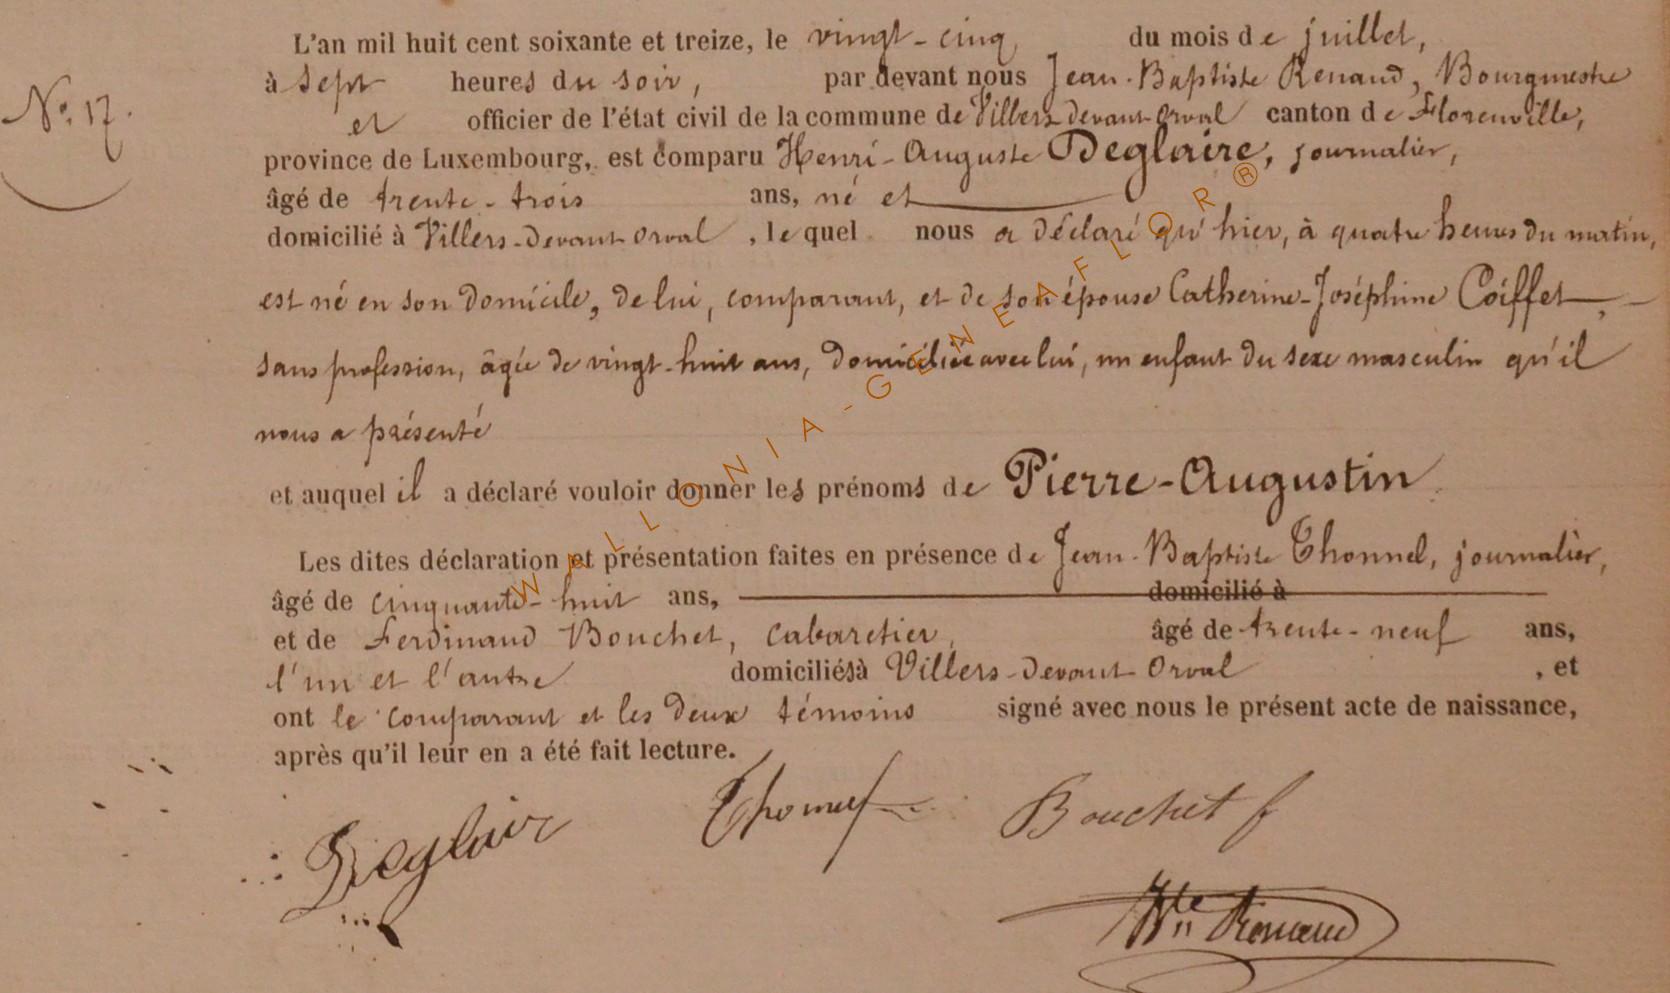 L'an mil huit cent soixante et treize, le vingt-cinq du mois de juillet,
à sept heures du soir, par devant nous Jean-Baptiste Renaud, Bourgmestre
N° 17.
et officier de l'état civil de la commune de Villers-devant-Orval canton de Florenville,
province de Luxembourg, est comparu Henri-Auguste Deglaire, journalier,
âgé de trente-trois ans, né et
domicilié à Villers-devant-Orval, lequel nous a déclaré qu'hier, à quatre heures du matin,
est né en son domicile, de lui, comparant, et de son épouse Catherine-Joséphine Coiffet,
sans profession, âgée de vingt-huit ans, domiciliée avec lui, un enfant du sexe masculin qu'il
nous a présenté
et auquel il a déclaré vouloir donner les prénoms de Pierre-Augustin
Les dites déclaration et présentation faites en présence de Jean-Baptiste Thonnel, journalier,
âgé de cinquante-huit ans, domicilié à
et de Ferdinand Bouchet, cabaretier, âgé de trente-neuf ans,
l'un et l'autre domiciliés à Villers-devant-Orval, et
ont le comparant et les deux témoins signé avec nous le présent acte de naissance,
après qu'il leur en a été fait lecture.
Deglaire Bouchet f
Renaud
WALLONIA-GENEAFLOR®